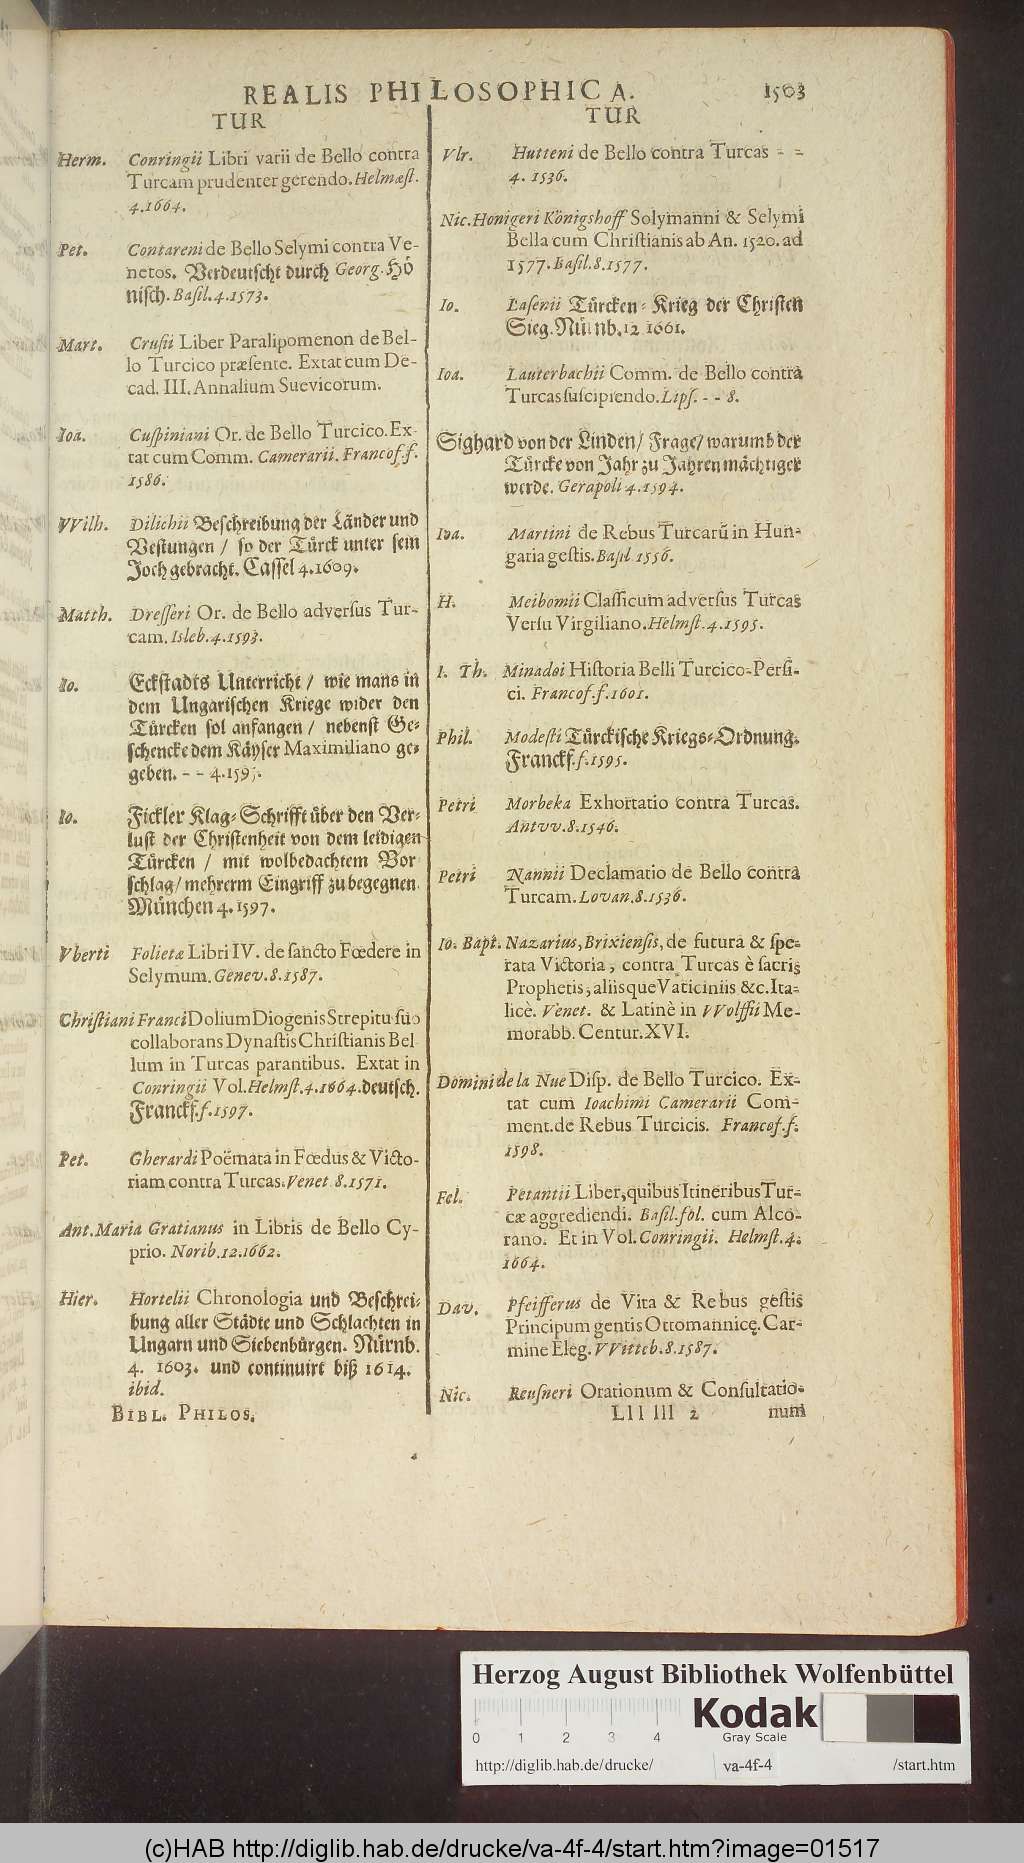 REALIS PHILOSOPHICA. 1503
TUR
Herm. Conringii Libri varii de Bello contra
Turcam prudenter gerendo. Helmæst.
4. 1664.
Pet. Contareni de Bello Selymi contra Ve-
netos. Verdeutscht durch Georg. Hö
nisch. Basil. 4. 1573.
Mart. Crusii Liber Paralipomenon de Bel-
lo Turcico præsente. Extat cum De-
cad. III. Annalium Suevicorum.
Ioa. Cuspiniani Or. de Bello Turcico. Ex-
tat cum Comm. Camerarii. Francof. f.
1586.
VVilh. Dilichii Beschreibung der Länder und
Vestungen / so der Türck unter sein
Joch gebracht. Cassel 4. 1609.
Matth. Dresseri Or. de Bello adversus Tur-
cam. Isleb. 4. 1593.
Io. Eckstadts Unterricht / wie mans in
dem Ungarischen Kriege wider den
Türcken sol anfangen / nebenst Ge-
schencke dem Käyser Maximiliano ge-
geben. - - 4. 159
Io. Fickler Klag-Schrifft über den Ver-
lust der Christenheit von dem leidigen
Türcken / mit wolbedachtem Vor
schlag / mehrerm Eingriff zu begegnen.
München 4. 1597.
Vberti Folietæ Libri IV. de sancto Fœdere in
Selymum. Genev. 8. 1587.
Christiani Franci Dolium Diogenis Strepitu suo
collaborans Dynastis Christianis Bel
lum in Turcas parantibus. Extat in
Conringii Vol. Helmst. 4. 1664. deutsch.
Franckf. f. 1597.
Pet. Gherardi Poëmata in Fœdus & Victo-
riam contra Turcas. Venet 8. 1571.
Ant. Maria Gratianus in Libris de Bello Cy-
prio. Norib. 12. 1662.
Hier. Hortelii Chronologia und Beschrei-
bung aller Städte und Schlachten in
Ungarn und Siebenbürgen. Nürnb.
4. 1603. und continuirt biß 1614.
ibid.
BIBL. PHILOS.
TUR
Vlr. Hutteni de Bello contra Turcas - -
4. 1536.
Nic. Honigeri Königshoff Solymanni & Selymi
Bella cum Christianis ab An. 1520. ad
1577. Basil. 8. 1577.
Io. Lasenii Türcken-Krieg der Christen
Sieg. Nürnb. 12 1661.
Ioa. Lauterbachii Comm. de Bello contra
Turcas suscipiendo. Lips. - - 8.
Sighard von der Linden / Frage / warumb der
Türcke von Jahr zu Jahren mächtiger
werde. Gerapoli 4. 1594.
Ioa. Martini de Rebus Turcarũ in Hun-
garia gestis. Basil 1556.
H. Meibomii Classicum adversus Turcas
Versu Virgiliano. Helmst. 4. 1595.
I. Th. Minadoi Historia Belli Turcico-Persi-
ci. Francof. f. 1601.
Phil. Modesti Türckische Kriegs-Ordnung.
Franckf. f. 1595.
Petri Morbeka Exhortatio contra Turcas.
Antvv. 8. 1546.
Petri Nannii Declamatio de Bello contra
Turcam. Lovan. 8. 1536.
Io. Bapt. Nazarius, Brixiensis, de futura & spe-
rata Victoria, contra Turcas è sacris
Prophetis, aliisque Vaticiniis &c. Ita-
licè. Venet. & Latinè in VVolffii Me-
morabb. Centur. XVI.
Domini de la Nue Disp. de Bello Turcico. Ex-
tat cum Ioachimi Camerarii Com-
ment. de Rebus Turcicis. Francof. f.
1598.
Fel. Petantii Liber, quibus Itineribus Tur-
cæ aggrediendi. Basil. fol. cum Alco-
rano. Et in Vol. Conringii. Helmst. 4.
1664.
Dav. Pfeifferus de Vita & Rebus gestis
Principum gentis Ottomannicę. Car-
mine Eleg. VVitteb. 8. 1587.
Nic. Reusneri Orationum & Consultatio-
Lll lll 2 num
Herzog August Bibliothek Wolfenbüttel
0 1 2 3 4
Kodak
Gray Scale
http://diglib.hab.de/drucke/ va-4f-4 /start.htm
(c)HAB http://diglib.hab.de/drucke/va-4f-4/start.htm?image=01517